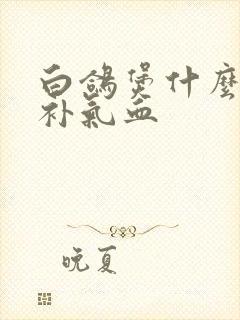 白鸽煲什麼
补氣血
晚夏